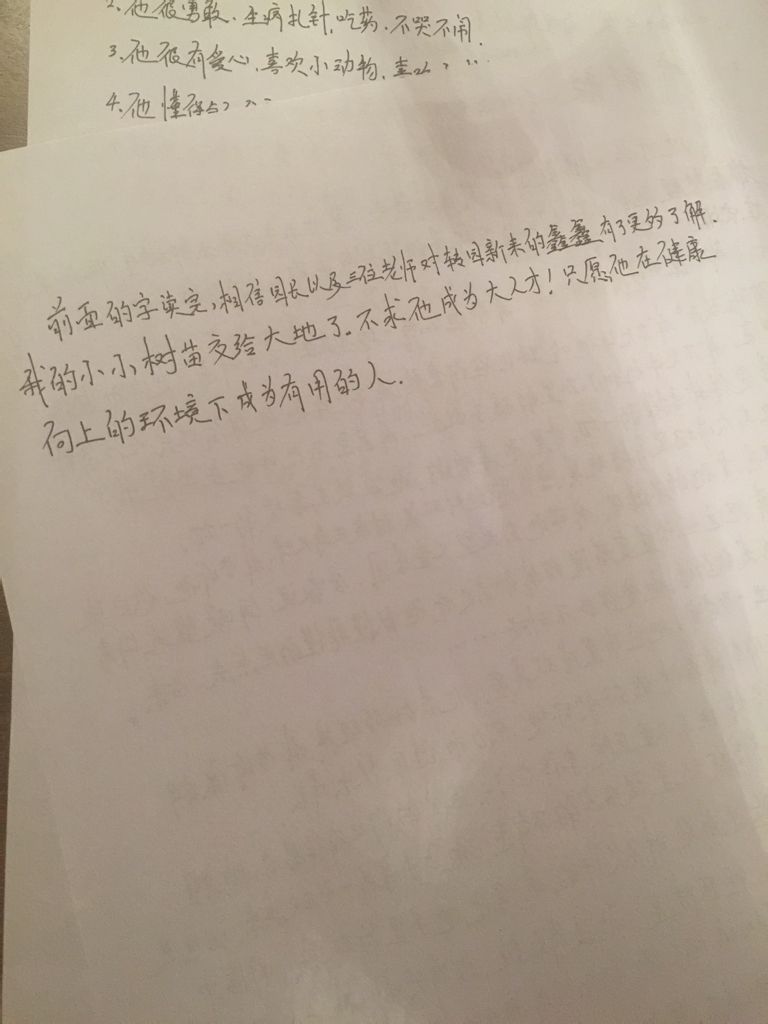 2.他很勇敢.生病扎针.吃药.不哭不闹.
3.他很有爱心.喜欢小动物.
4.他懂得
前面的字读完,相信园长以及三位老师对转园新来的鑫鑫有了更多了解.
我的小小树苗交给大地了.不求他成为大人才!只愿他在健康
向上的环境下成为有用的人.